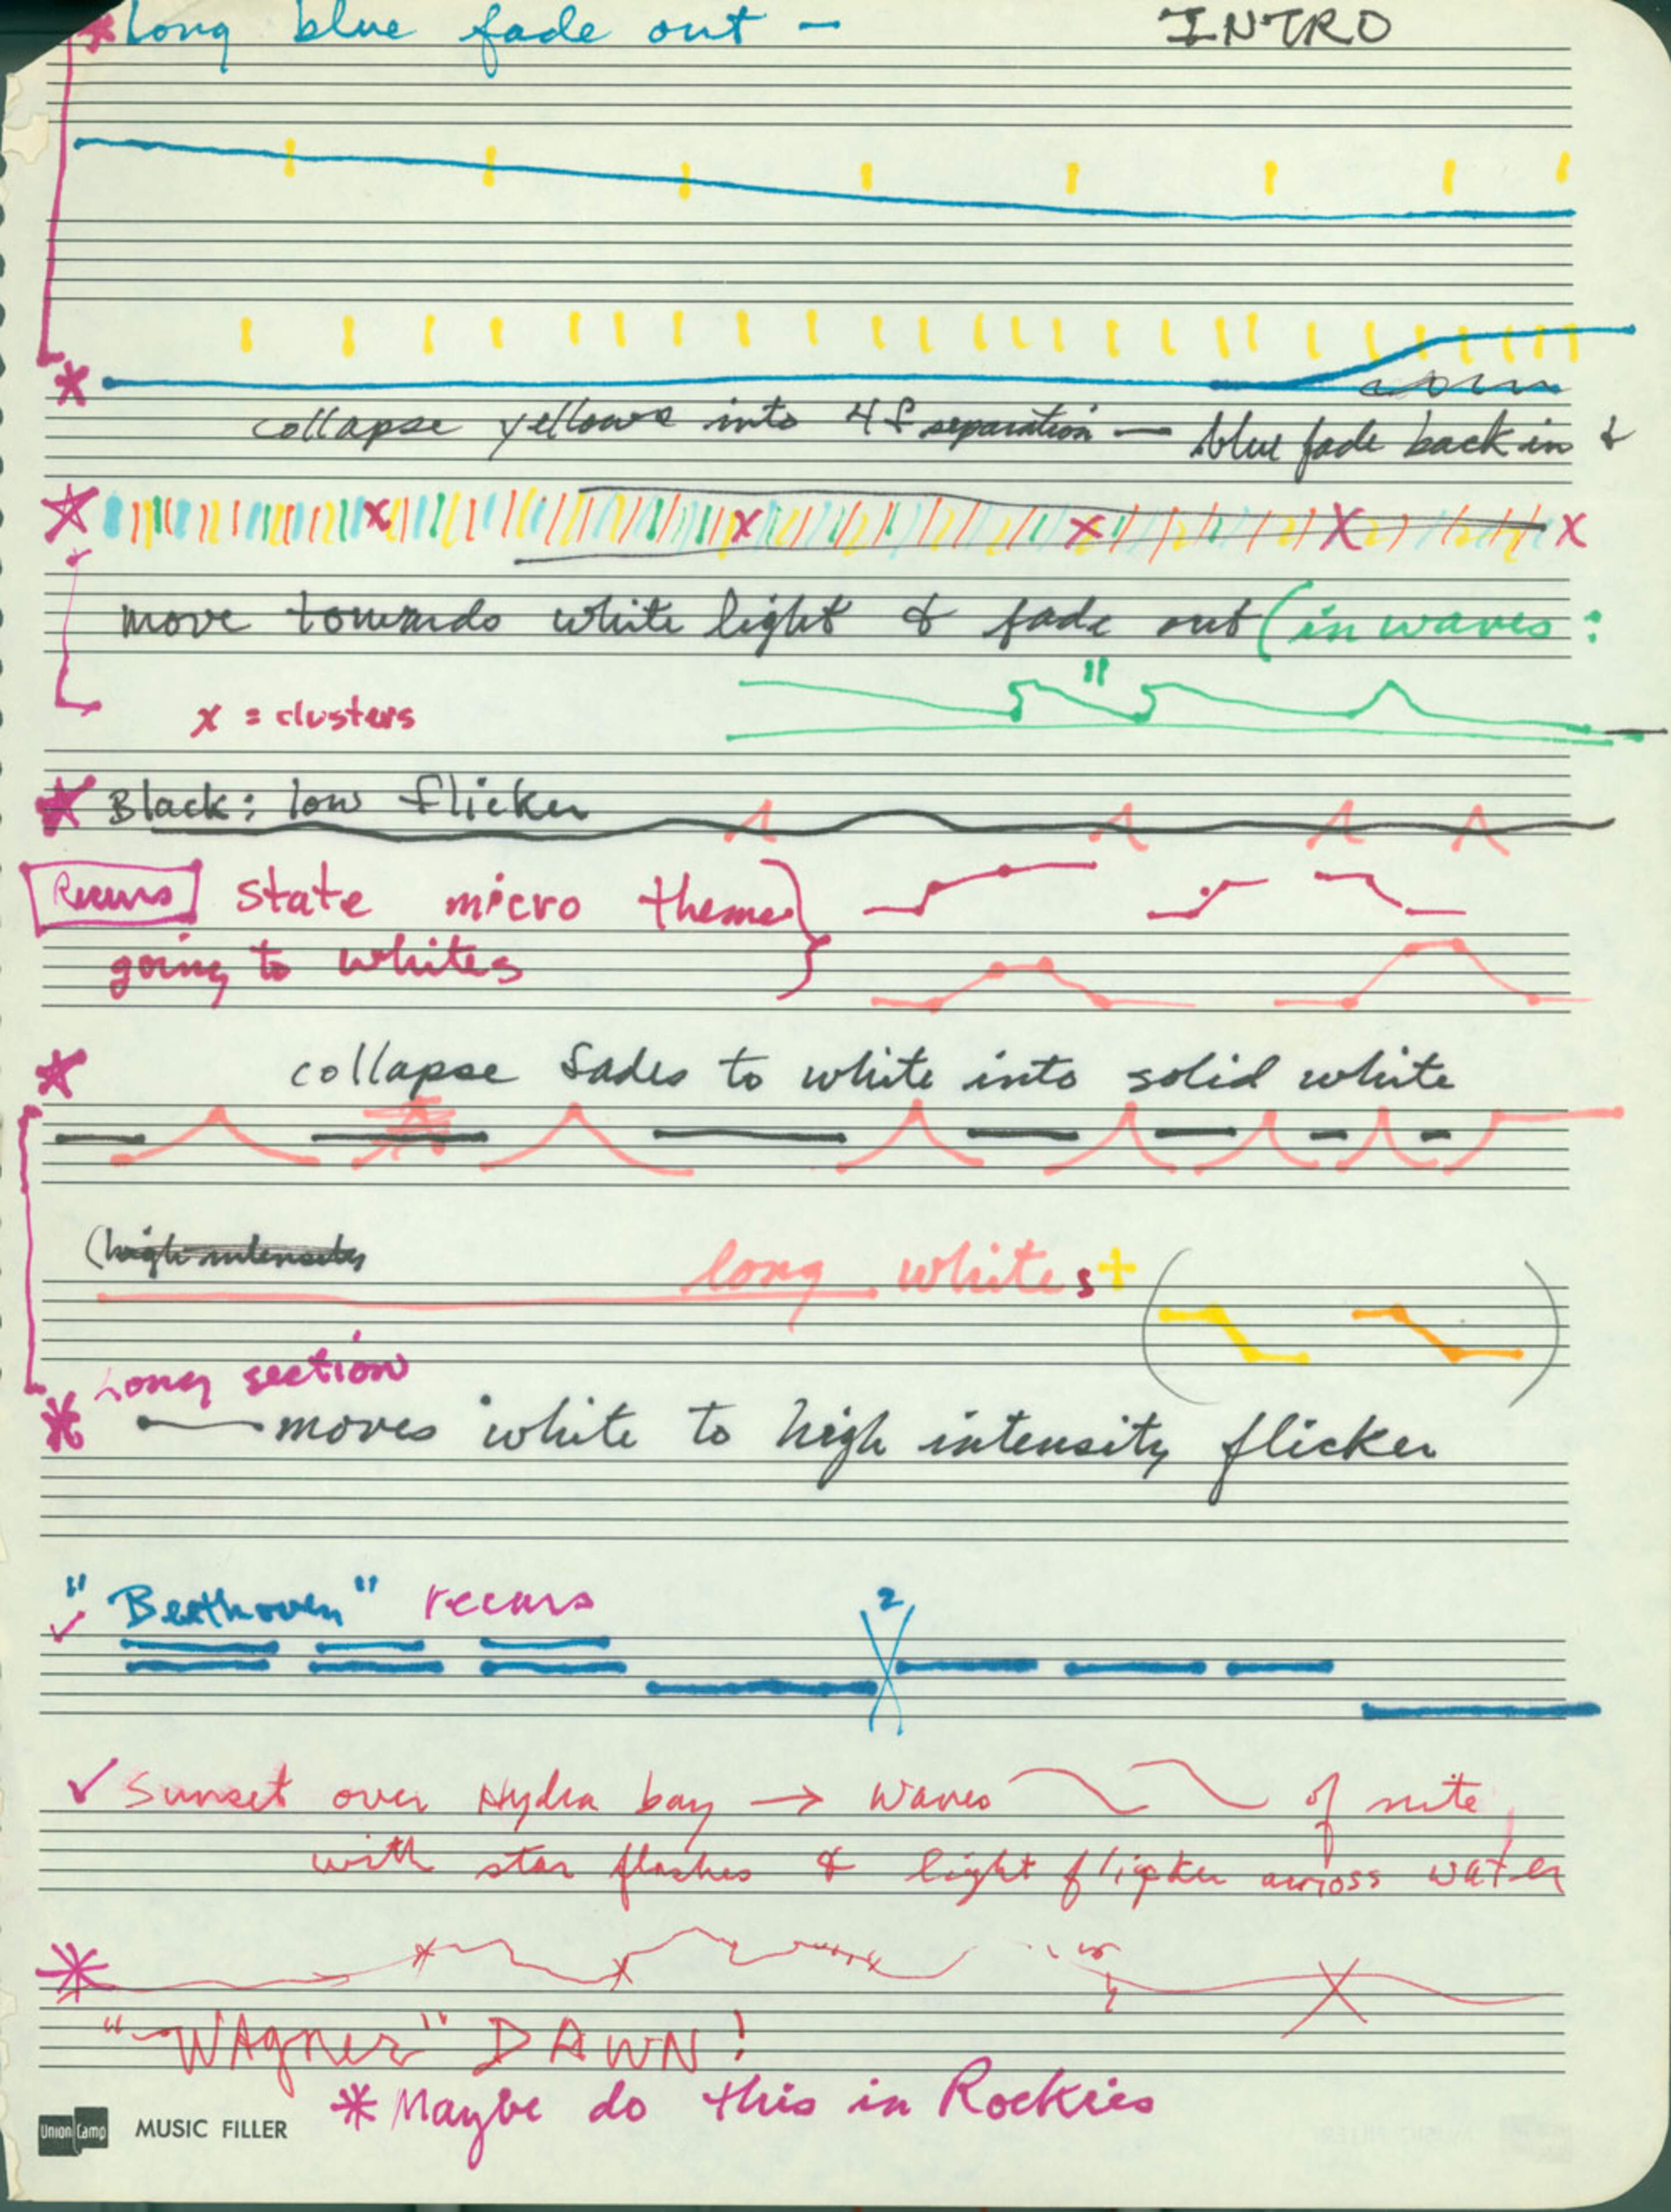 * Long blue fade out — INTRO
collapse yellows into 4f separation — blue fade back in &
move towards white light & fade out (in waves:
"
x = clusters
Black: low flicker
Recurs State micro theme
going to whites
collapse fades to white into solid white
(high intensity
long whites +
Long section
moves white to high intensity flicker
"Beethoven" recurs
2
✓ Sunset over Hydra bay → waves of nite
with star flashes & light flicker across water
"WAgner" DAWN!
* Maybe do this in Rockies
Union Camp MUSIC FILLER